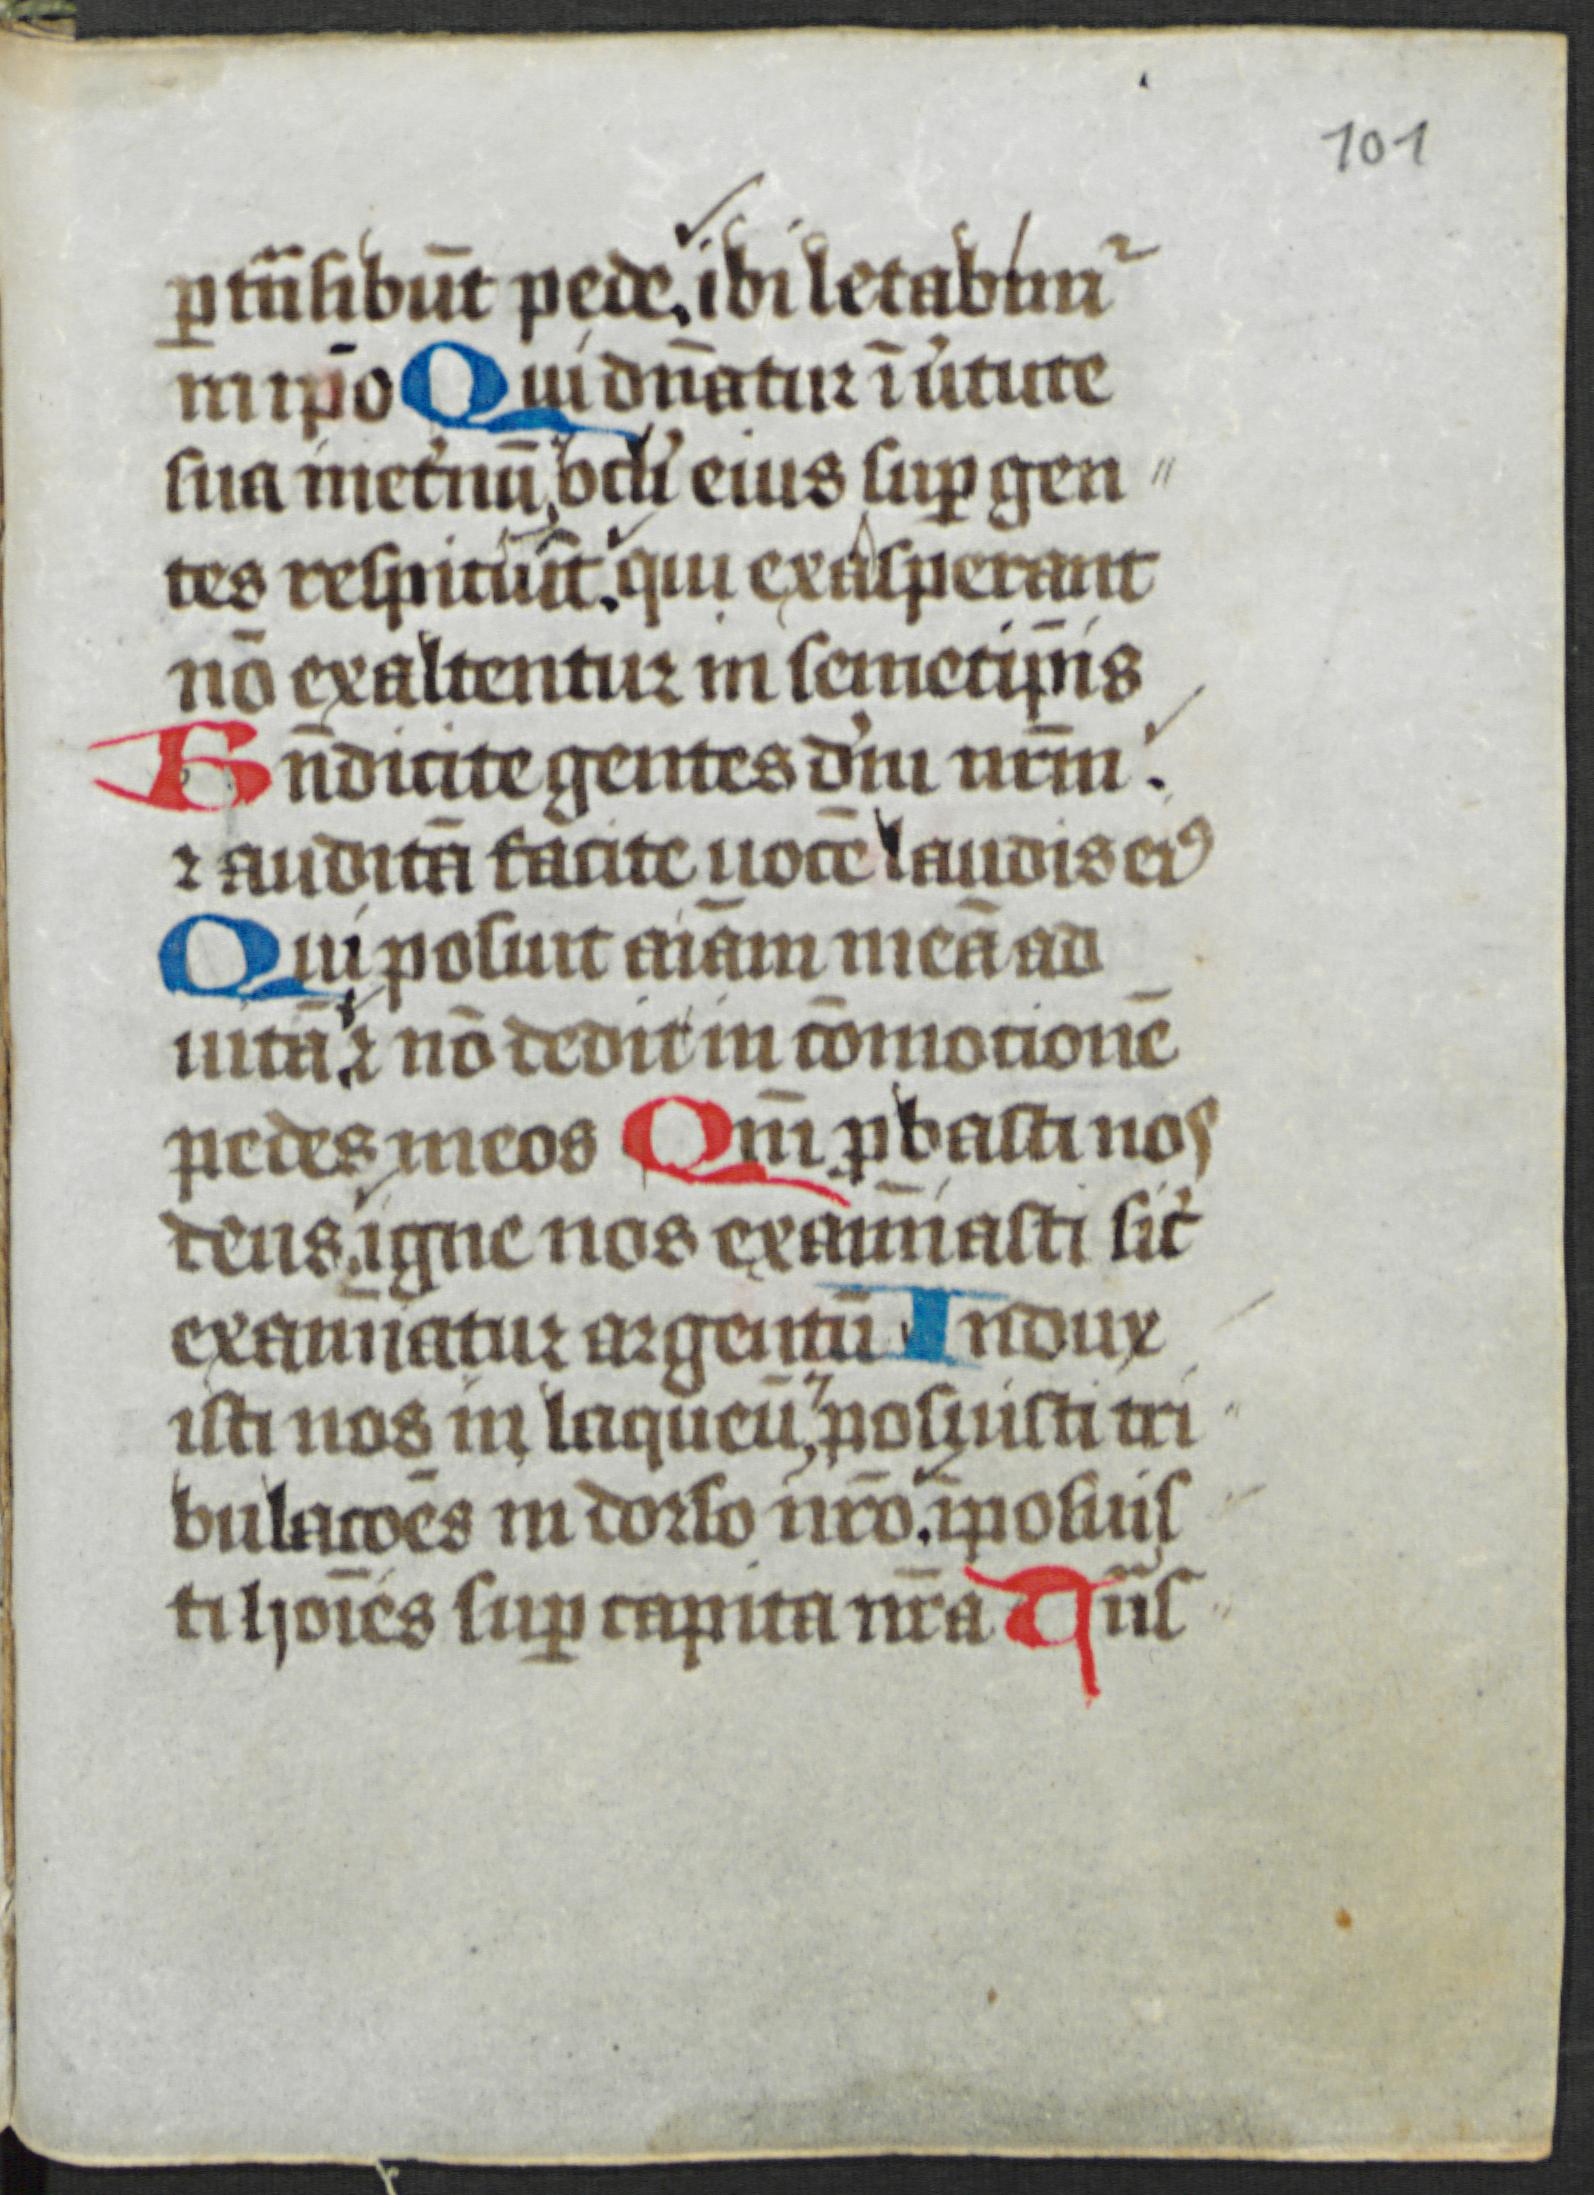 101
ꝑtͥnsibūt pede. ibi letabimᷣ
in ip̄o Qui dn̄atur ī u̓tute
sua in et̓nū, oc̓li eius suꝑ gen〃
tes respitiūt. qui exasperant
nō exaltentur in semetip̄is
Bn̄dicite gentes d̓m nr̄m.
⁊ auditā facite uocē laudis eiꝰ
Qui posuit aīam meā ad
uitā. ⁊ nō dedit in cōmotionē
pedes meos Qm̄ ꝓbasti nos
deus. igne nos examīasti sic̓
examīatur argentū Indux
isti nos in laqueū, posuisti tri〃
bulacōes in dorso nr̄o. īposuis
ti hoīes suꝑ capita nr̄a Tͣnſ〃